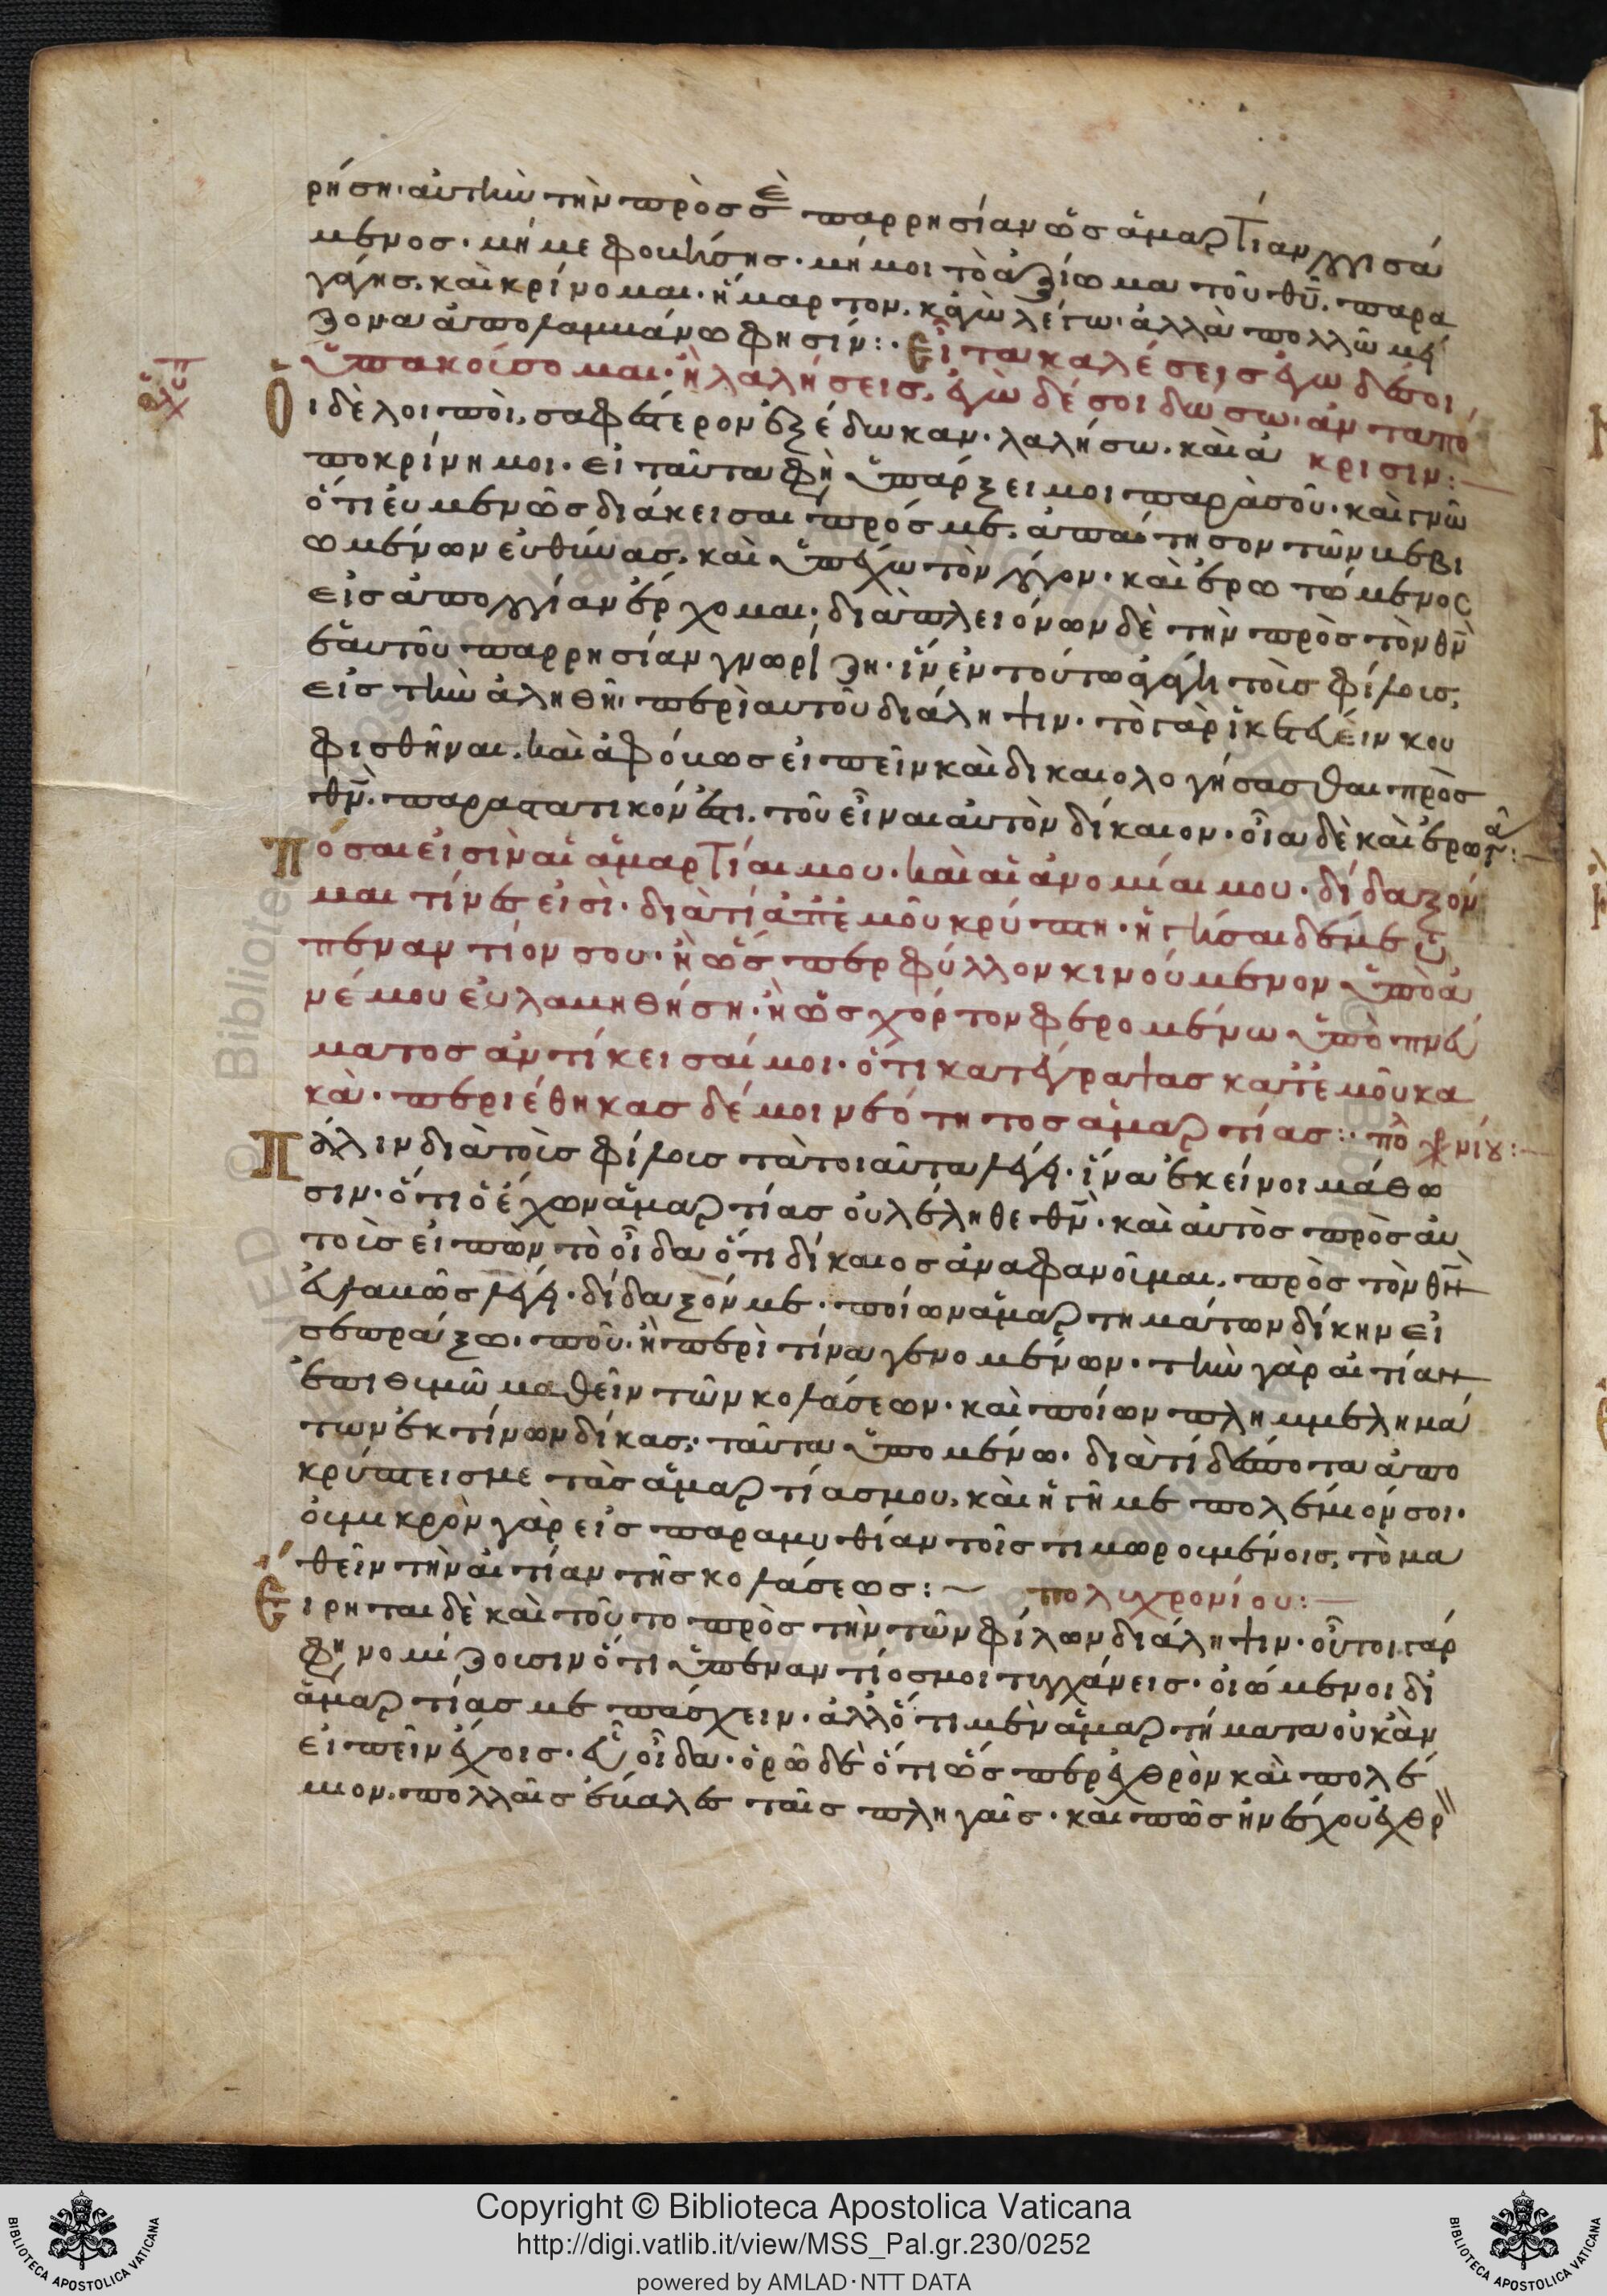 ρήση· αὐτὴν τὴν πρὸς σὲ παρρησίαν ὡς ἁμαρτίαν λογισά
μενος· μή με φοβήσης· μή μοι τὸ ἀξίωμα τοῦ θῦ. παρα
γάγης. καὶ κρίνομαι· ἥμαρτον. κἀγὼ λέγω· ἀλλὰ πολλῶ μεί
ζονα ἀπολαμβάνω φησίν:· Εἶτα καλέσεις ἐγὼ δέ σοι
ὑπακούσομαι· ἢ λαλήσεις, ἐγὼ δέ σοι δώσω· ἀνταπό
Οἱ δὲ λοιποὶ, σαφέστερον ἐξέδωκαν· λαλήσω. καὶ ἀ κρισιν:
ποκρίνη μοι· εἰ ταῦτα φὴ ὑπάρξει μοι παρὰ σοῦ· καὶ γνῶ
ὅτι εὐμενῶς διάκεισαι πρός με. ἀπαίτησον τῶν μὲ βι
ωμένων εὐθύνας. καὶ ὑπέχω τὸν λόγον· καὶ ἐρωτώμενος
εἰς ἀπολογίαν ἔρχομαι· διὰ πλειόνων δὲ τὴν πρὸς τὸν θν
ἑαυτοῦ παρρησίαν γνωρίζη· ἵν' ἐν τούτω ἀγάγη τοὺς φίλους,
εἰς τὴν ἀληθῆ περὶ αὐτοῦ διάληψιν· τὸ γὰρ ἱκετεύειν κου
φισθῆναι. καὶ ἀφόβως εἰπεῖν καὶ δικαιολογήσασθαι πρὸς
θν. παραστατικόν ἐστι. τοῦ εἶναι αὐτὸν δίκαιον· οἷα δὲ καὶ ἐρωτᾶ:
Πόσαι εἰσὶν αἱ ἁμαρτίαι μου· καὶ αἱ ἀνομίαι μου· δίδαξόν
μαι τίνες εἰσί· διὰ τί ἀπ' ἐμοῦ κρύπτη· ἥγησαι δέ με ὑ
πεναντίον σου· ἢ ὥσπερ φύλλον κινούμενον ὑπὸ ἀ
νέμου εὐλαβηθήση· ἢ ὡς χόρτον φερομένω ὑπὸ πνεύ
ματος ἀντίκεισαί μοι· ὅτι κατέγραψας κατ' ἐμοῦ κα
κὰ· περιέθηκας δέ μοι νεότητος ἁμαρτίας:·
Πάλιν διὰ τοὺς φίλους τὰ τοιαῦτα λέγει· ἵνα ἐκεῖνοι μάθω
σιν· ὅτι ὁ ἔχων ἁμαρτίας οὐ λέληθε θν· καὶ αὐτὸς πρὸς αὐ
τοὺς εἰπὼν τὸ οἶδα ὅτι δίκαιος ἀναφανοῦμαι, πρὸς τὸν θν
εὐλαβῶς λέγει· δίδαξόν με· ποίων ἁμαρτημάτων δίκην εἰ
σεπράξω. ποῦ· ἢ περὶ τίνα γενομένων· τὴν γὰρ αἰτίαν
ἐπιθυμῶ μαθεῖν τῶν κολάσεων· καὶ ποίων πλημμελημά
των ἐκτίνων δίκας, ταῦτα ὑπομένω. διὰ τί δέσποτα ἀπο
κρύπτεις με τὰς ἁμαρτίας μου, καὶ ἡγῆ με πολέμιόν σοι·
οὐ μικρὸν γὰρ εἰς παραμυθίαν τοῖς τιμωρουμένοις, τὸ μα
θεῖν τὴν αἰτίαν τῆς κολάσεως: πολυχρονίου:
Εἴρηται δὲ καὶ τοῦτο πρὸς τὴν τῶν φίλων διάληψιν· οὗτοι γάρ
φη νομίζουσιν ὅτι ὑπεναντίος μοι τυγχάνεις· οἰόμενοι δι'
ἁμαρτίας με πάσχειν· ἀλλ' ὅτι μὲν ἁμαρτήματα οὐκ ἂν
εἰπεῖν ἔχοις· εὖ οἶδα· ὁρῶ δὲ ὅτι ὥσπερ ἐχθρὸν καὶ πολέ
μιον. πολλαῖς ἔβαλες ταῖς πληγαῖς· καὶ πῶς